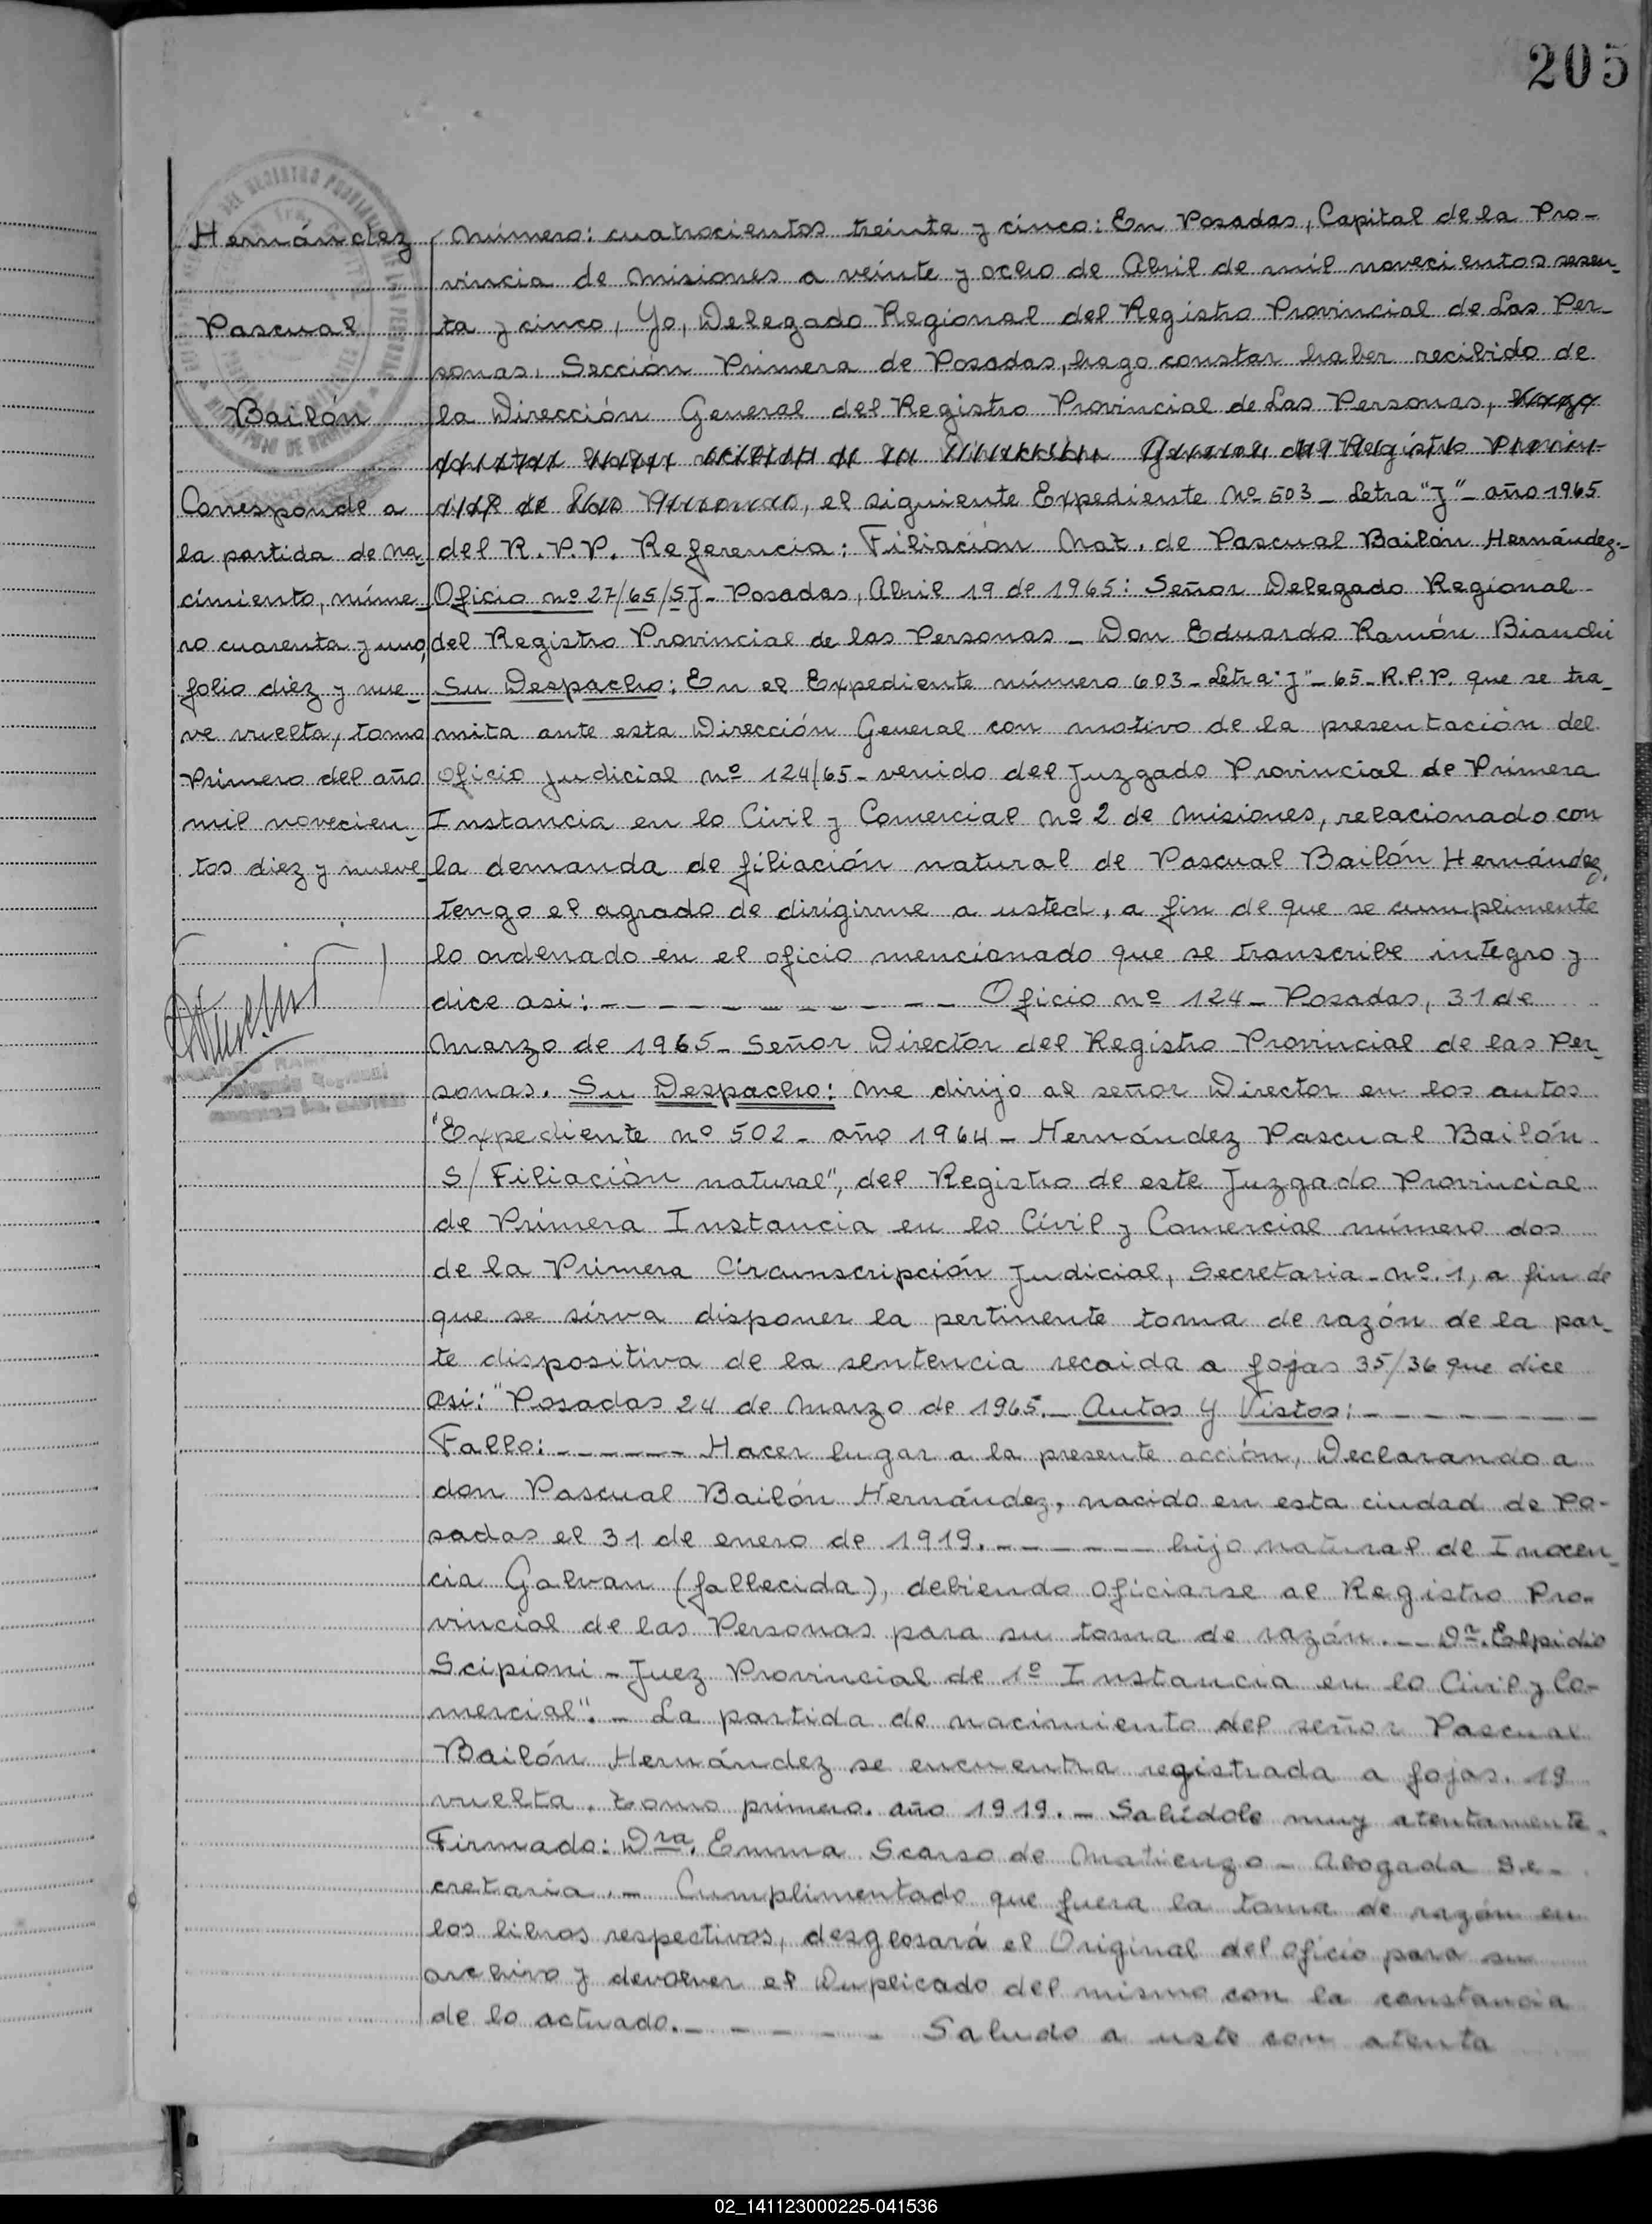 205
Hernández
Pascual
Bailón
Corresponde a
la partida de na-
cimiento, núme-
ro cuarenta y uno,
folio diez y nue-
ve vuelta, tomo
Primero del año
mil novecien-
tos diez y nueve-
Delegado Regional
Número: cuatrocientos treinta y cinco: En Posadas, Capital de la Pro-
vincia de Misiones a veinte y ocho de Abril de mil novecientos sesen-
ta y cinco, Yo, Delegado Regional del Registro Provincial de Las Per-
sonas, Sección Primera de Posadas, hago constar haber recibido de
la Dirección General del Registro Provincial de Las Personas, hago
constar haber recibido de la Dirección General del Registro Provin-
cial de las Personas, el siguiente Expediente Nº 503 - Letra "J" - año 1965
del R.P.P. Referencia: Filiación Nat. de Pascual Bailón Hernández.-
Oficio nº 27/65/SJ- Posadas, Abril 19 de 1965: Señor Delegado Regional
del Registro Provincial de las Personas - Don Eduardo Ramón Bianchi
Su Despacho: En el Expediente número 603 - Letra "J" - 65 - R.P.P. que se tra-
mita ante esta Dirección General con motivo de la presentación del
oficio judicial nº 124/65 - venido del Juzgado Provincial de Primera
Instancia en lo Civil y Comercial Nº 2 de Misiones, relacionado con
la demanda de filiación natural de Pascual Bailón Hernández,
tengo el agrado de dirigirme a usted, a fin de que se cumplimente
lo ordenado en el oficio mencionado que se transcribe integro y
dice asi: - - - - - - - - - - Oficio nº 124 - Posadas, 31 de
Marzo de 1965 - Señor Director del Registro Provincial de las Per-
sonas. Su Despacho: Me dirijo al señor Director en los autos
"Expediente nº 502 - año 1964 - Hernández Pascual Bailón
S/ Filiación natural", del Registro de este Juzgado Provincial
de Primera Instancia en lo Civil y Comercial número dos
de la Primera Circunscripción Judicial, Secretaria - Nº. 1, a fin de
que se sirva disponer la pertinente toma de razón de la par-
te dispositiva de la sentencia recaida a fojas 35/36 que dice
asi: "Posadas 24 de Marzo de 1965.- Autos Y Vistos: - - - - - - -
Fallo: - - - - - - Hacer lugar a la presente acción, Declarando a
don Pascual Bailón Hernández, nacido en esta ciudad de Po-
sadas el 31 de enero de 1919. - - - - - - hijo natural de Inocen-
cia Galvan (fallecida), debiendo oficiarse al Registro Pro-
vincial de las Personas para su toma de razón. - - Dr. Elpidio
Scipioni - Juez Provincial de 1º Instancia en lo Civil y Co-
mercial". - La partida de nacimiento del señor Pascual
Bailón Hernández se encuentra registrada a fojas. 19
vuelta. tomo primero. año 1919. - Salúdole muy atentamente.
Firmado: Dra. Emma Scarso de Matienzo - Abogada Se-
cretaria. - Cumplimentado que fuera la toma de razón en
los libros respectivos, desglosará el Original del oficio para su
archivo y devolver el Duplicado del mismo con la constancia
de lo actuado. - - - - - - Saludo a uste con atenta
02_141123000225-041536